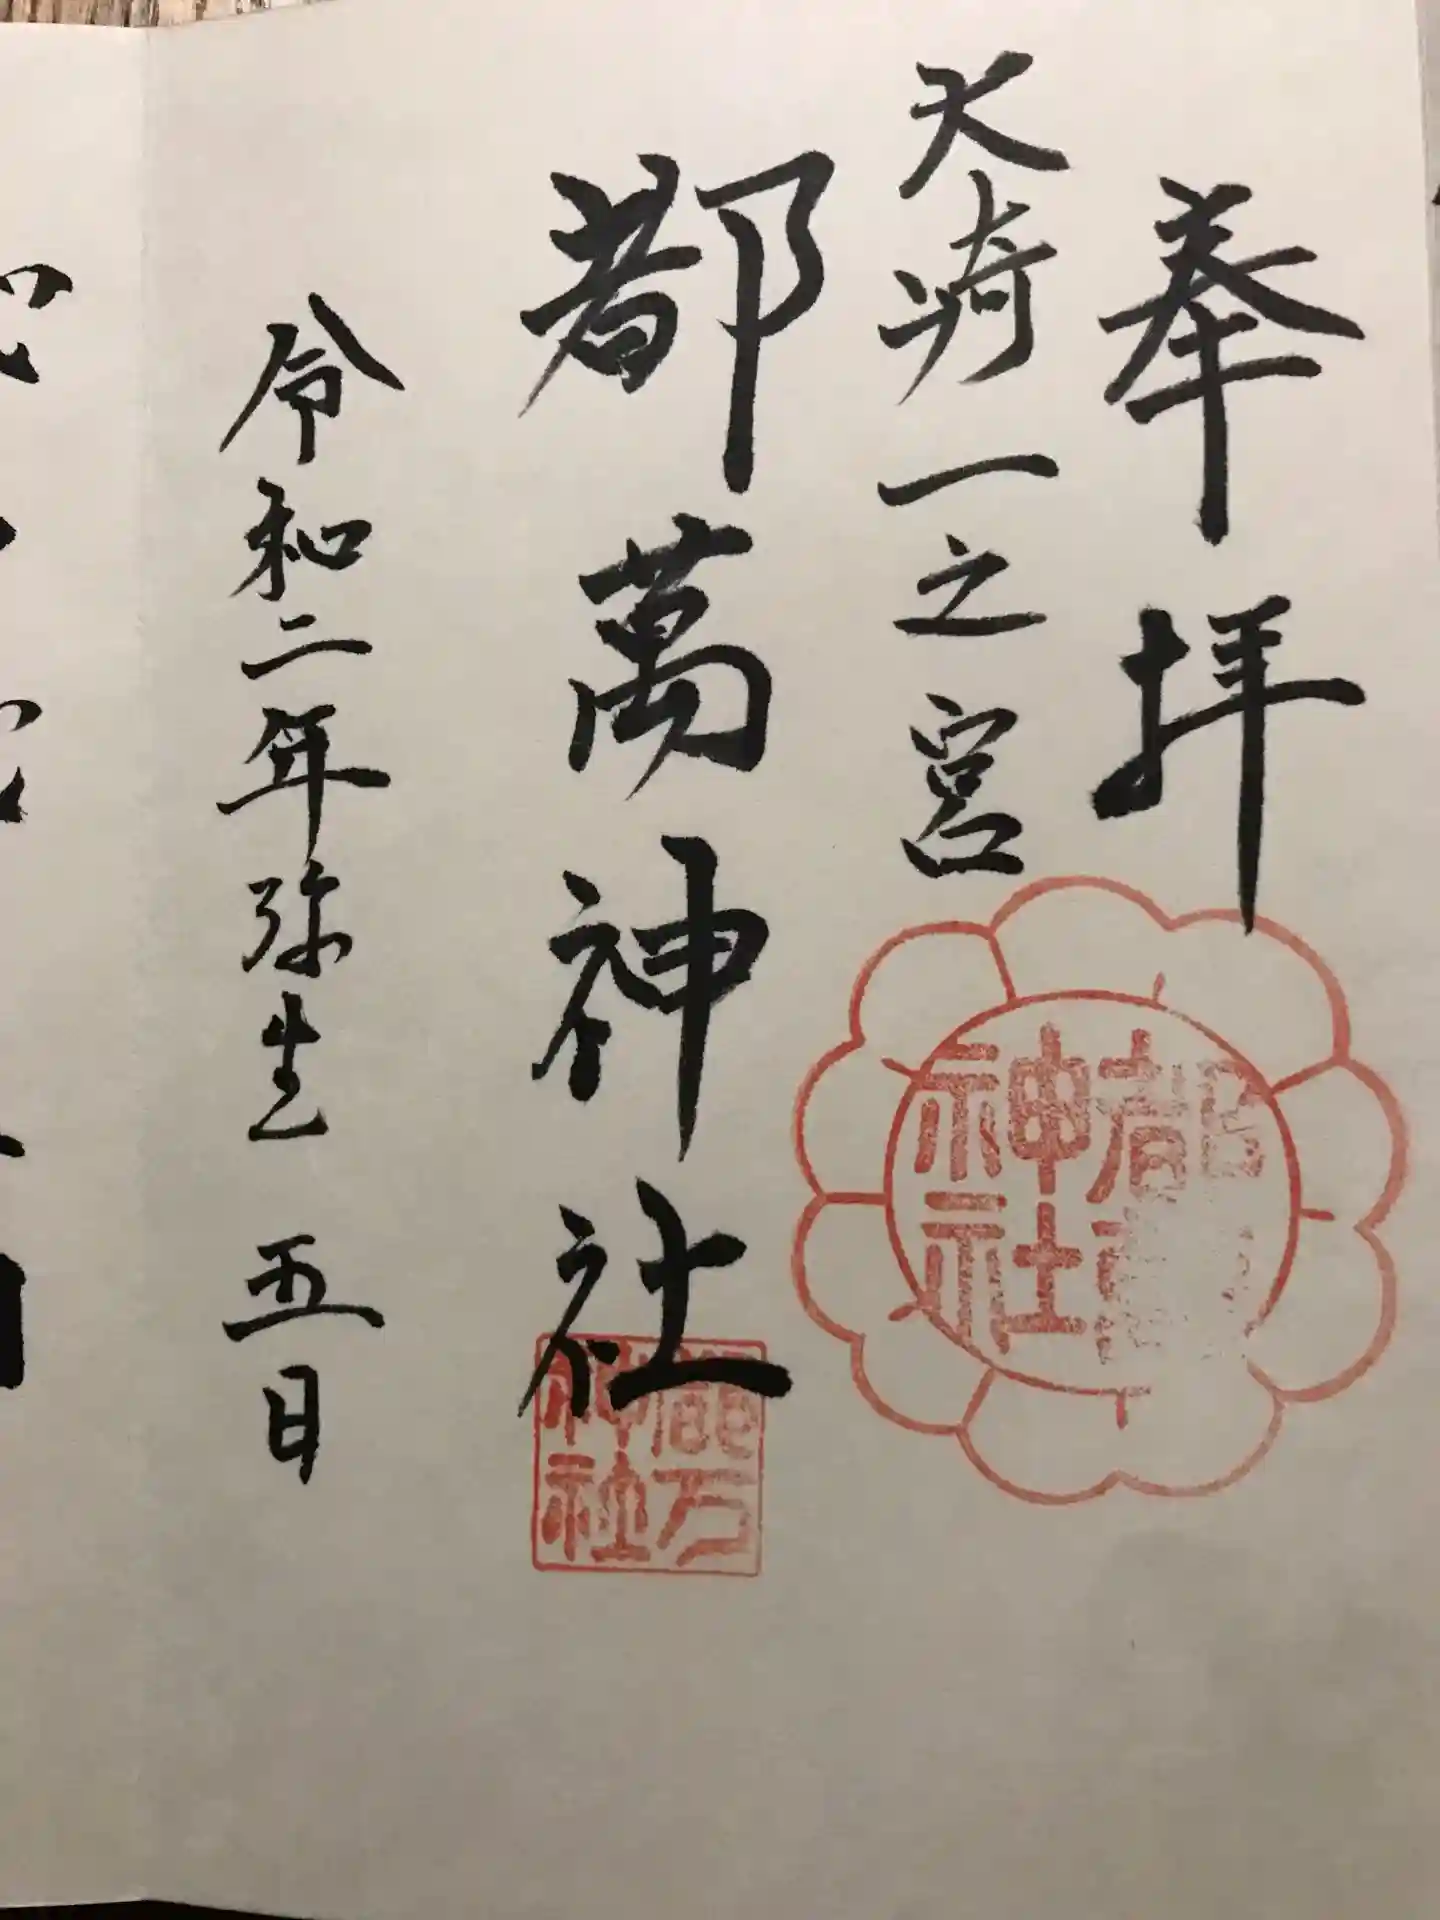 奉拝
大崎一之宮
都萬神社
令和二年弥生 五日
都萬
神社
都万
神社